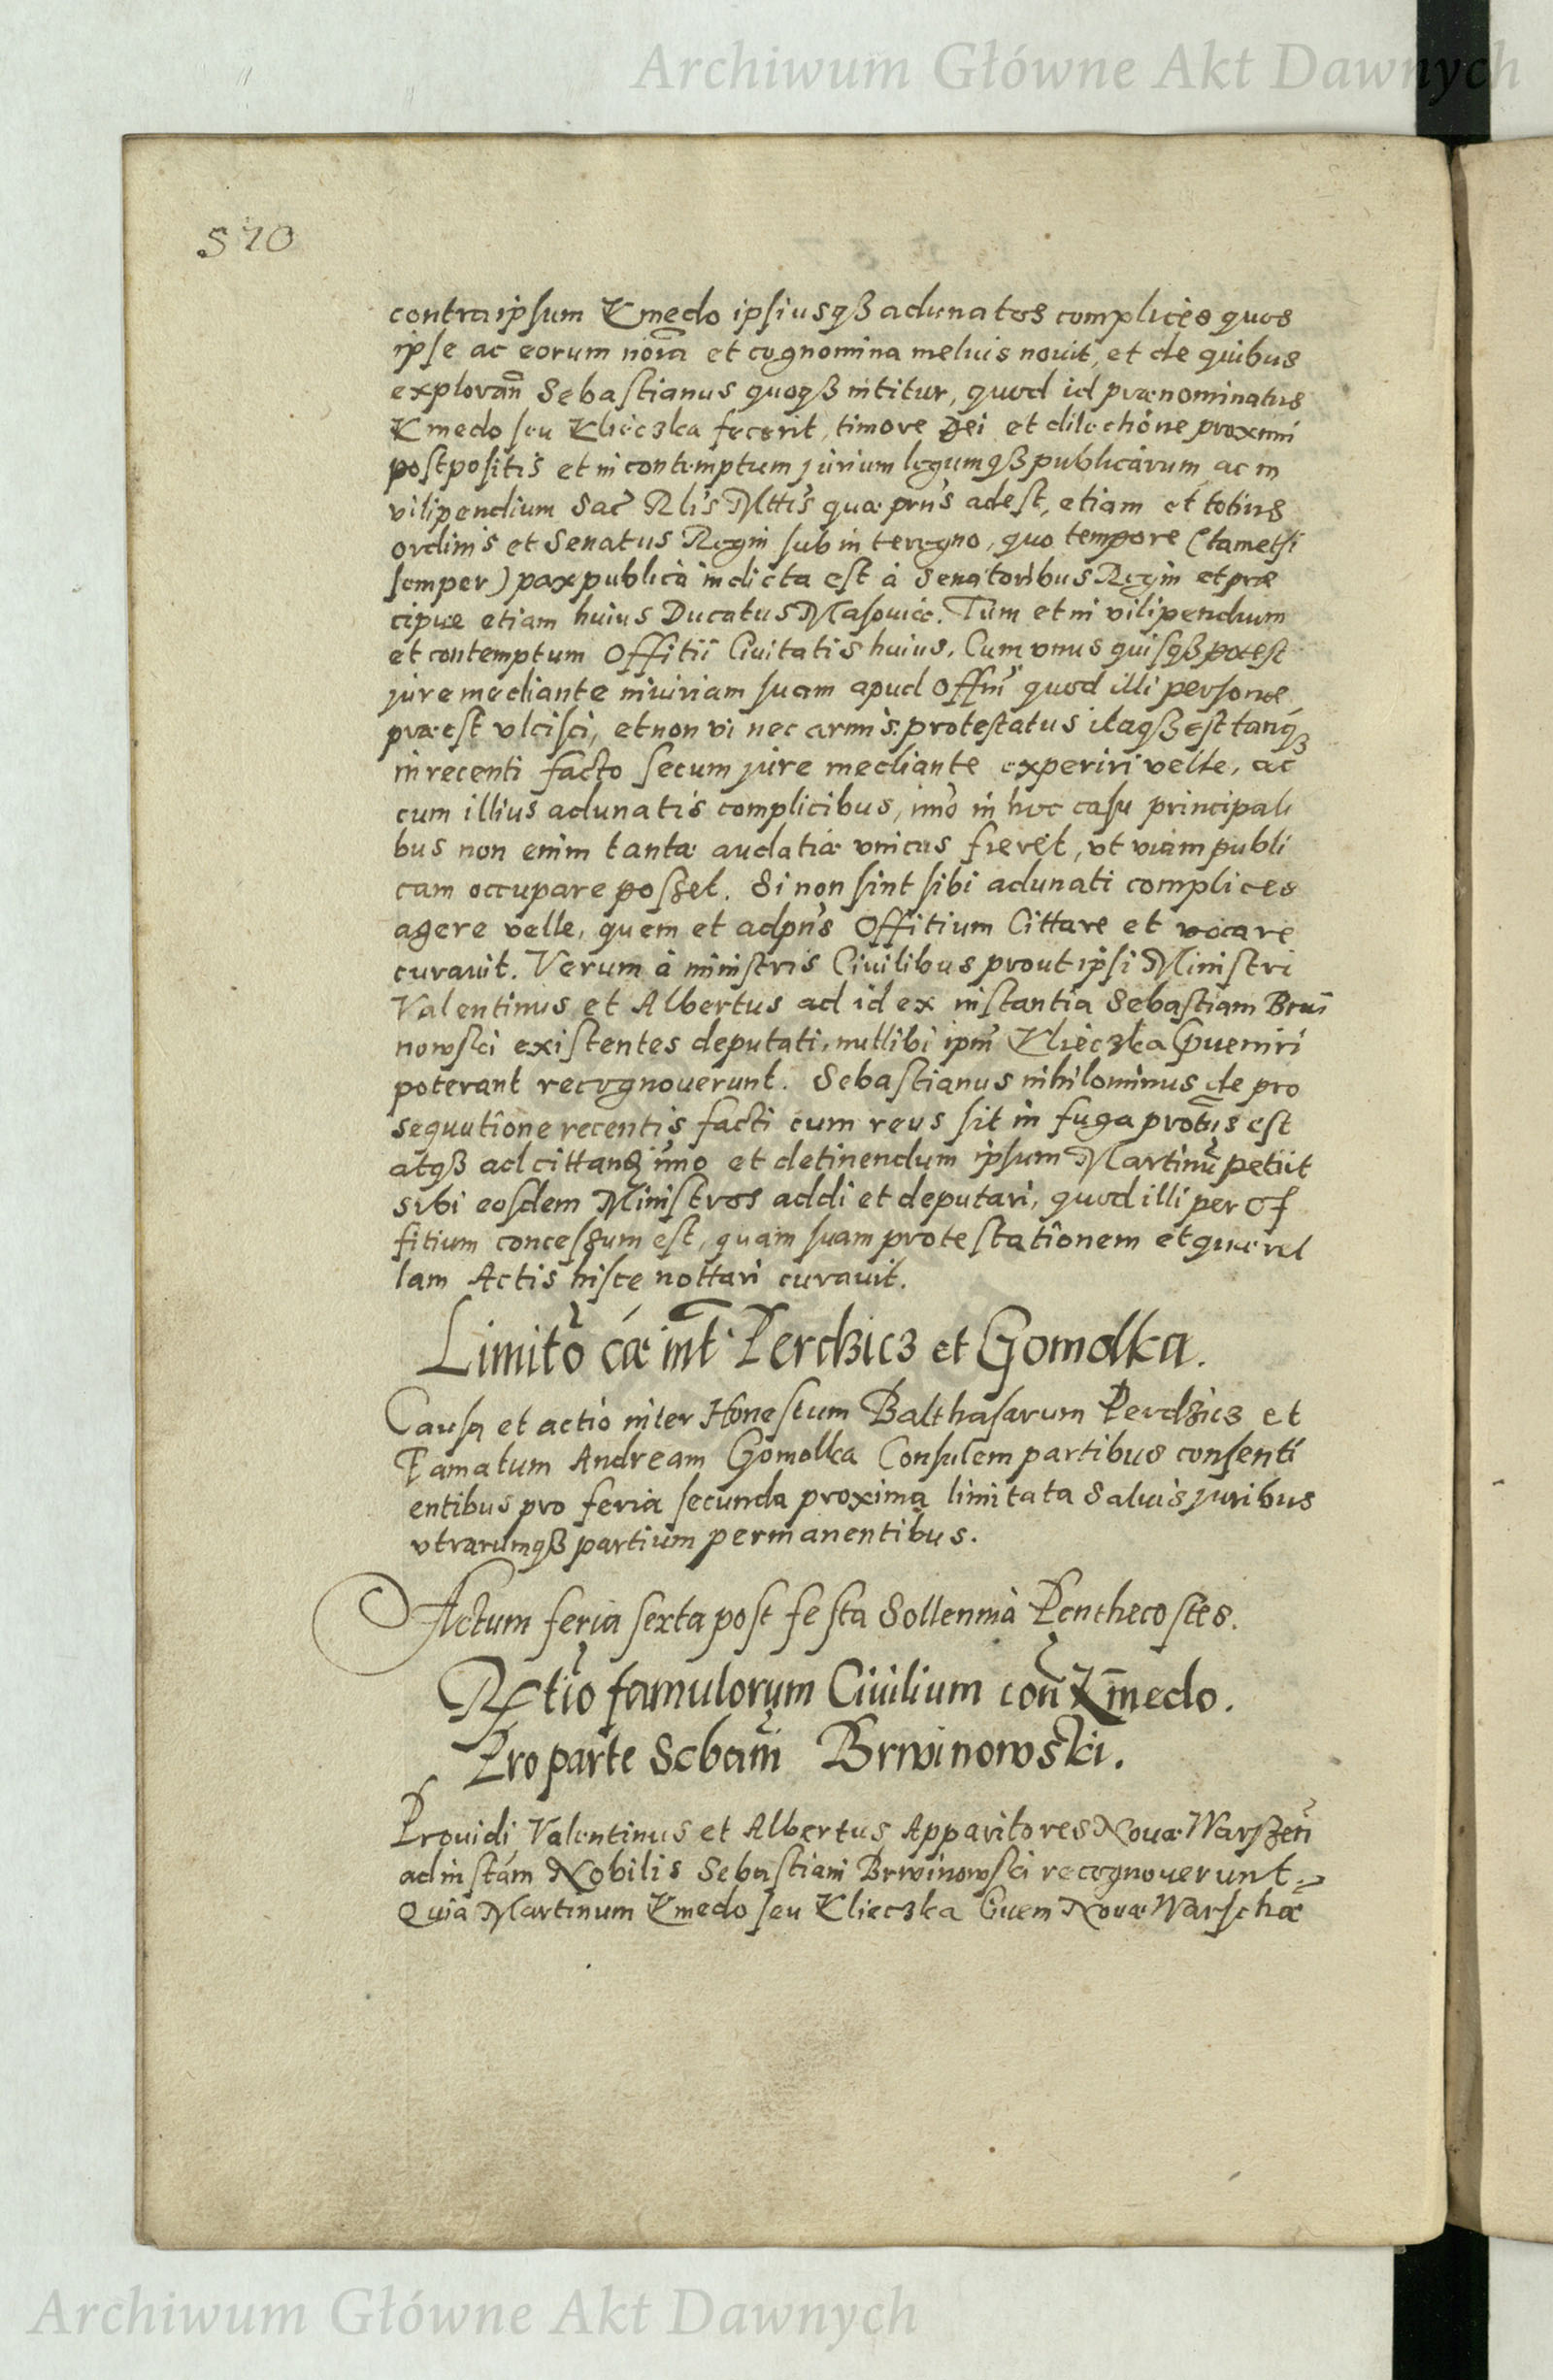 Archiwum Główne Akt Dawnych
570
contra ipsum Kmedo ipsiusqꝫ adunatos complices quos
ipse ac eorum noĩa et cognomina melius nouit, et de quibus
exploranđ Sebastianus quoqꝫ nititur, quod id prænominatus
Kmedo seu Klieczka fecerit, timore Dei et dilectione proximi
postpositis et in contemptum jurium legumqꝫ publicarum ac in
vilipendium Sac̃ Rlis Mttis quæ prñs adest, etiam et totius
ordinis et Senatus Regni sub interregno, quo tempore (tametsi
semper) pax publica indicta est à Senatoribus Regni et præ
cipue etiam huius Ducatus Masouiæ. Tum et in vilipendium
et contemptum Offitii Ciuitatis huius. Cum vnus quisqꝫ potest
jure mediante iniuriam suam apud Offm̃ quod illi personæ
præest vlcisci, et non vi nec armis: protestatus itaqꝫ est tanqꝫ
in recenti facto secum jure mediante experiri velle, ac
cum illius adunatis complicibus, imo in hoc casu principali
bus non enim tantæ audatiæ vnicus fieret, vt viam publi
cam occupare posset. Si non sint sibi adunati complices
agere velle, quem et ad pñs Offitium Cittare et vocare
curauit. Verum à ministris Ciuilibus prout ipsi Ministri
Valentinus et Albertus ad id ex instantia Sebastiani Brui
nowski existentes deputati, nullibi ipm̃ Klieczka Cpueniri
poterant recognouerunt. Sebastianus nihilominus de pro
sequutione recentis facti cum reus sit in fuga protus est
atqꝫ ad cittand imo et detinendum ipsum Martinũ petiit
sibi eosdem Ministros addi et deputari, quod illi per Of
fitium concessum est, quam suam protestationem et querel
lam Actis hisce nottari curauit.
Limito cæ int Perdzicz et Gomolka.
Causa et actio inter Honestum Balthasarum Perdzicz et
Famatum Andream Gomolka Consulem partibus consenti
entibus pro feria secunda proxima limitata Saluis juribus
vtrarumqꝫ partium permanentibus.
Actum feria sexta post festa Sollennia Penthecostes.
Rtio famulorum Ciuilium con Kmedo.
Pro parte Sebani Brwinowski.
Prouidi Valentinus et Albertus Apparitores Nouæ Warszeñ
ad instam Nobilis Sebastiani Brwinowski recognouerunt
Quia Martinum Kmedo seu Klieczka Ciuem Nouæ Warschæ
Archiwum Główne Akt Dawnych